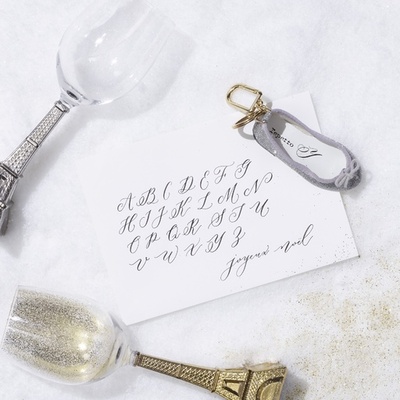 Repetto
A B C D E F G
H I J K L M N
O P Q R S T U
V W X Y Z
joyeux noel